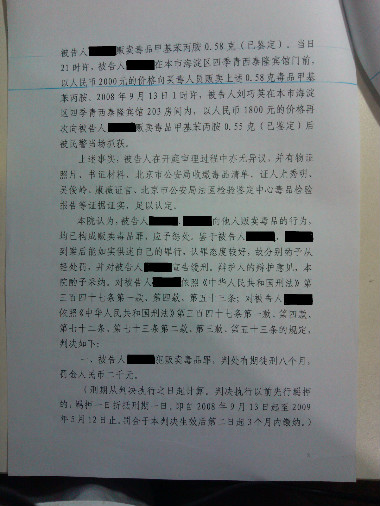 被告人 贩卖毒品甲基苯丙胺 0.58 克（已鉴定）。当日
21 时许，被告人 在本市海淀区四季青西泰隆宾馆门前，
以人民币 2000元的价格向 人员贩卖上述 0.58 克毒品甲基
苯丙胺。2008 年 9 月 13 日 1 时许，被告人刘巧英在本市海淀
区四季青西泰隆宾馆 203 房间内，以人民币 1800 元的价格再
次向被告人 贩卖毒品甲基苯丙胺 0.55 克（已鉴定）后
被民警当场抓获。
上述事实，被告人在开庭审理过程中亦无异议，并有物证
照片、书证材料、北京市公安局收缴毒品清单、证人 、
吴俊岭、康淑 证言、北京市公安局法医检验鉴定中心毒品检验
报告等证据证实，足以认定。
本院认为，被告人 、 向他人贩卖毒品的行为，
均已构成贩卖毒品罪，应予惩处。鉴于被告人 、
到案后能如实供述自己的罪行，认罪态度较好，故分别给予从
轻处罚，并对被告人 宣告缓刑。辩护人的辩护意见，本
院酌予采纳。对被告人 依照《中华人民共和国刑法》第
三百四十七条第一款、第四款、第五十三条；对被告人
依照《中华人民共和国刑法》第三百四十七条第一款、第四款、
第七十二条、第七十三条第二款、第三款、第五十三条的规定，
判决如下：
一、被告人 犯贩卖毒品罪，判处有期徒刑八个月，
罚金人民币二千元。
（刑期从判决执行之日起计算。判决执行以前先行羁押
的，羁押一日折抵刑期一日，即自 2008 年 9 月 13 日起至 2009
年 5 月 12 日止。罚金于本判决生效后第二日起 3 个月内缴纳。）